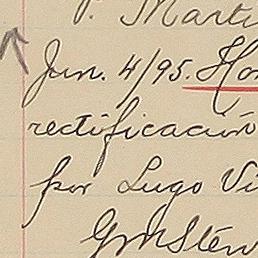 P. Marti
Jun. 4/95. Hon
rectificación
por Lugo Vi